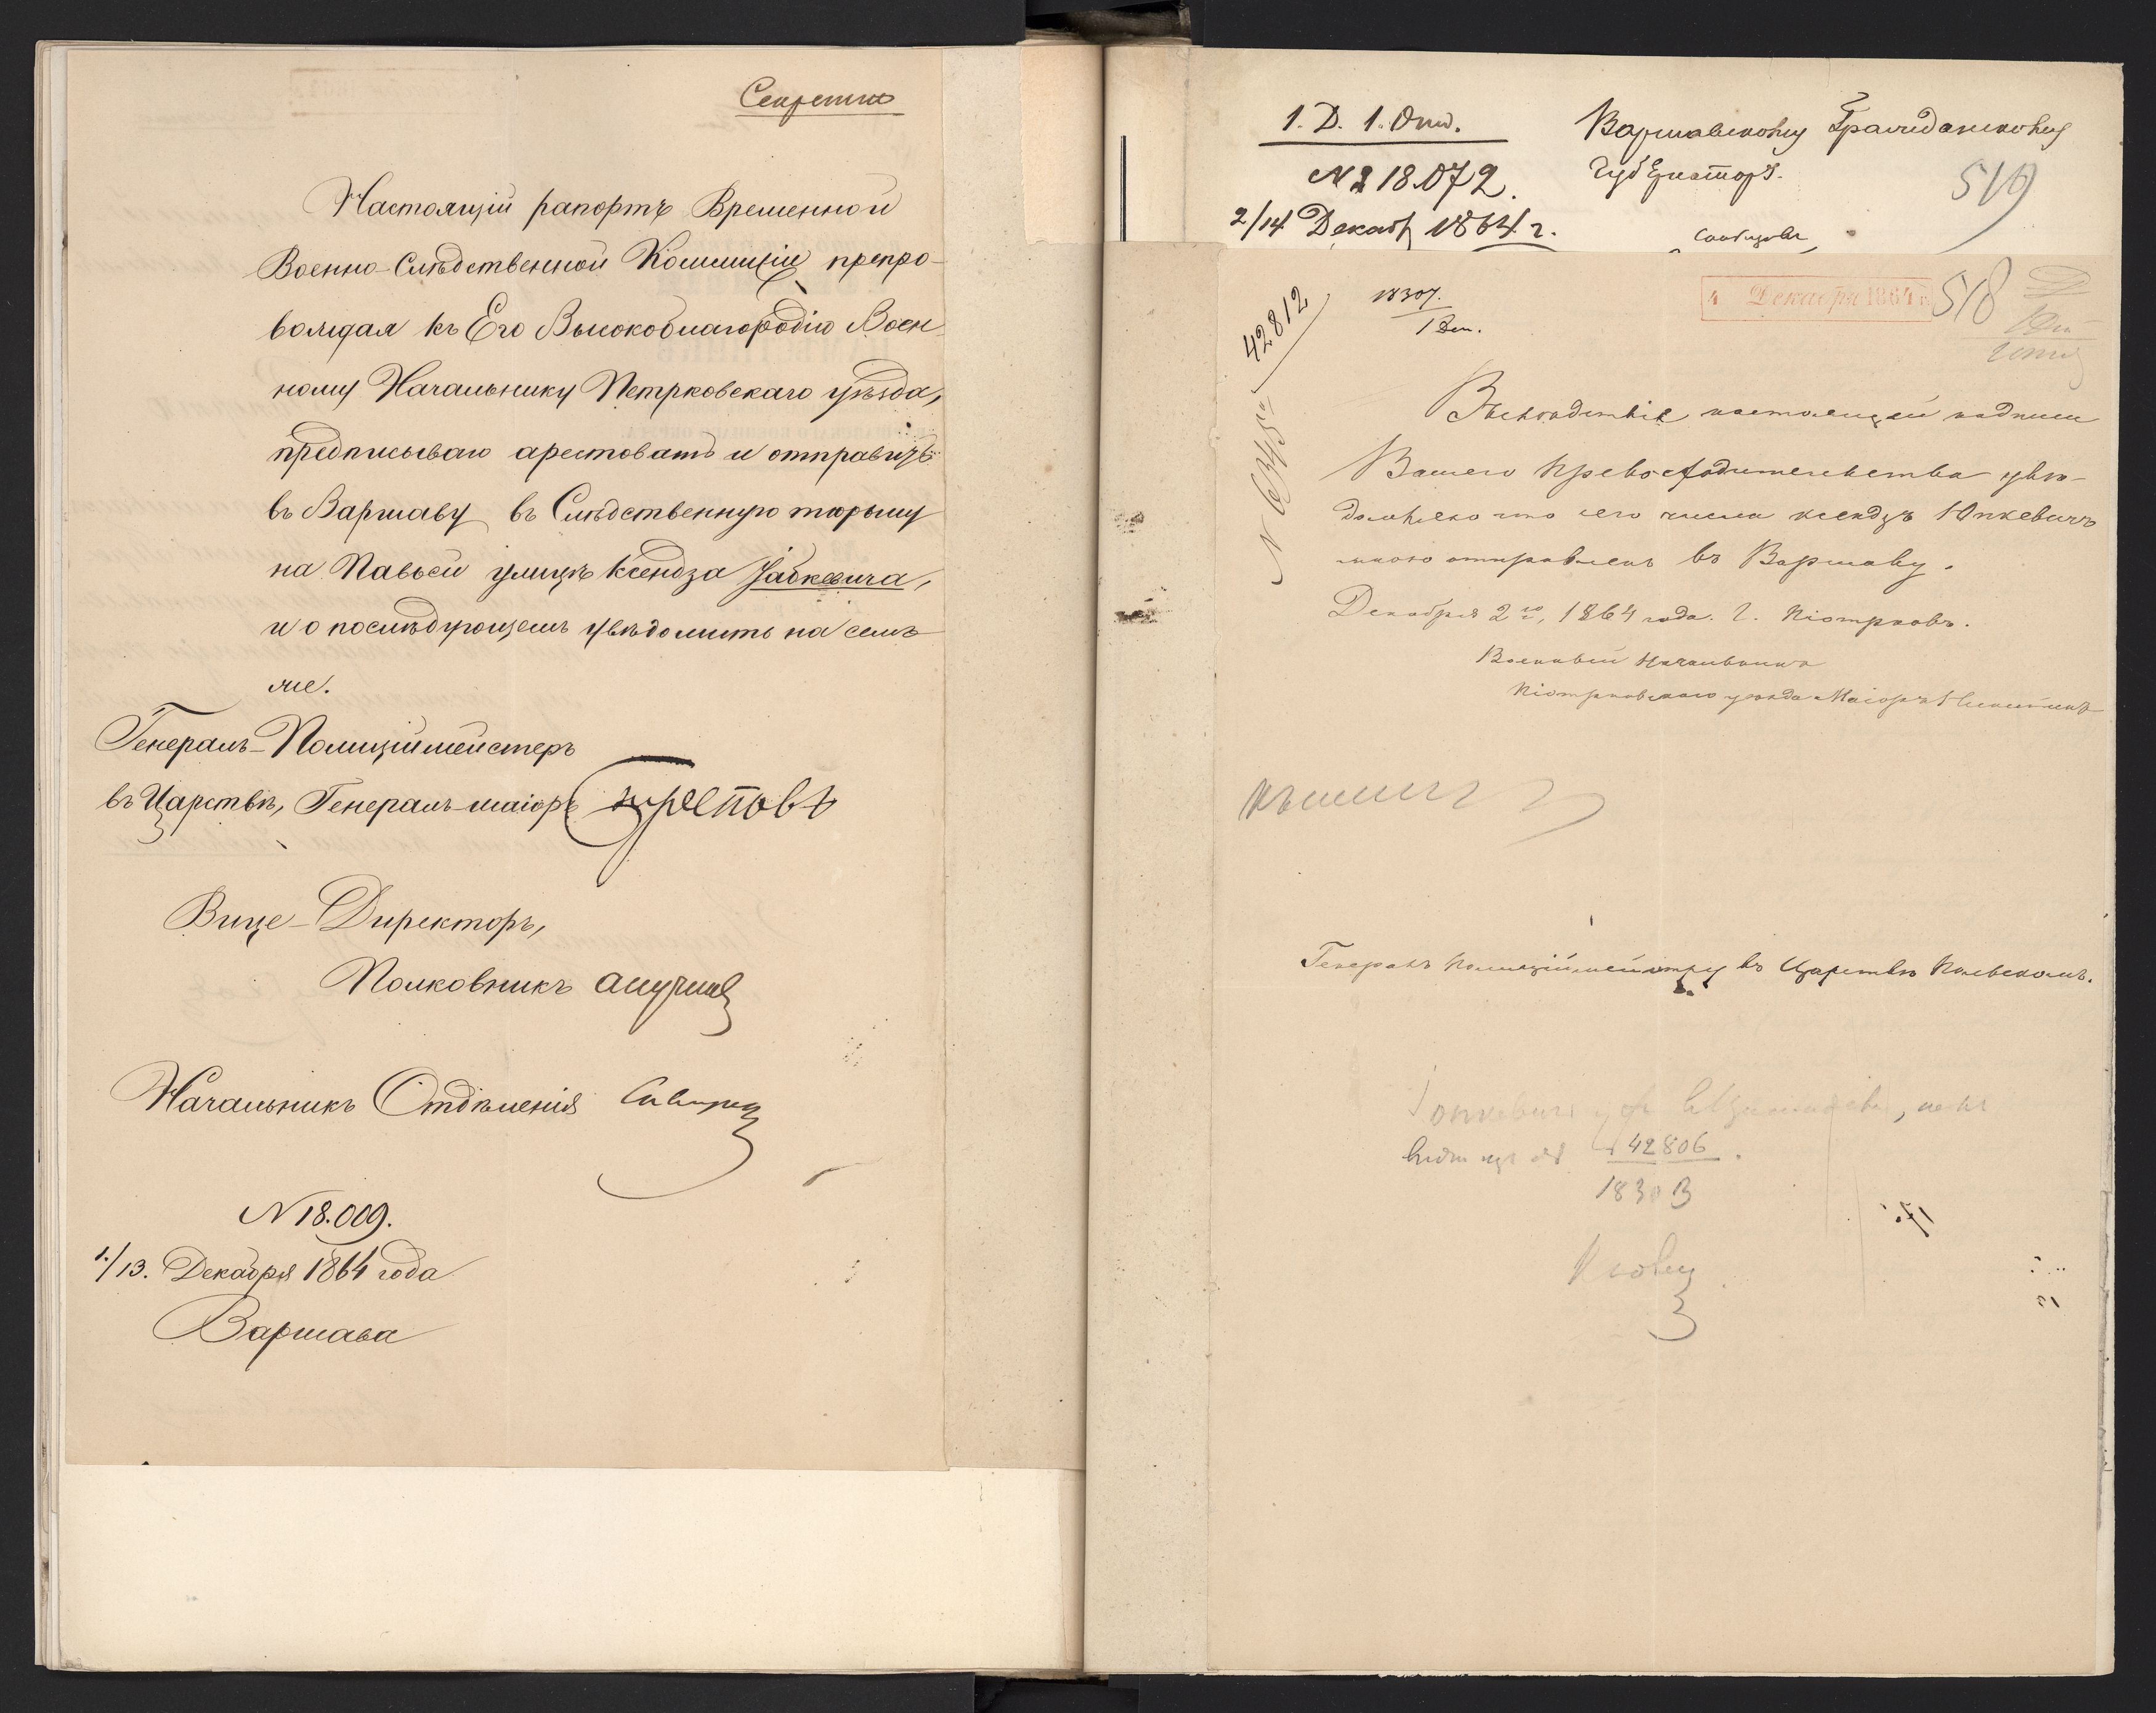 Секретно
Настоящій рапортъ Временной
Военно-Слѣдственной Коммиціи препро-
вождая къ Его Высокоблагородію Воен
ному Начальнику Петрковскаго уѣзда,
предписываю арестовать и отправить
въ Варшаву въ Слѣдственную тюрьму
на Павьей улицѣ ксендза Јабкевича,
и о послѣдующемъ увѣдомить на семъ
же.
Генералъ-Полиціймейстеръ
въ Царствѣ, Генералъ-маіоръ Треповъ
Вице-Директоръ,
Полковникъ Анучинъ
Начальникъ Отдѣленія
N 18.009.
1/13. Декабря 1864 года
Варшава
1. Д. 1. Отд.
№ 18.072.
2/14 Декаб 1864 г.
Варшавскому Гражданскому
Губернатору.
519
42812
18307.
1 Дек.
4 Декабря 1864 г.
518
Вслѣдствіе настоящей надписи
Вашего Превосходительства увѣ-
домляю что сего числа ксендзъ Юпкевичъ
мною отправленъ въ Варшаву.
Декабря 2го, 1864 года. Г. Піотрковъ.
Военный Начальникъ
Піотрковскаго уѣзда Маіоръ
Генералъ Полиціймейстеру въ Царствѣ Польскомъ.
42806